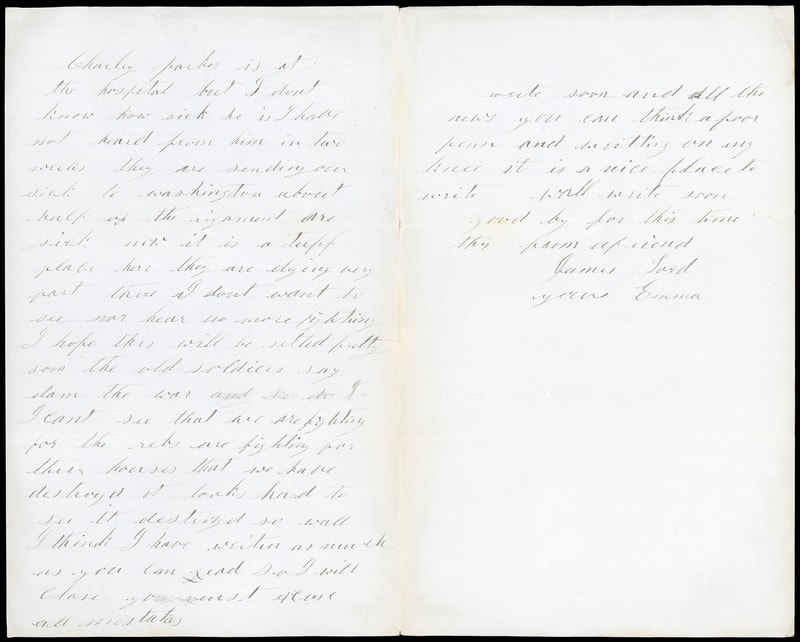 Charley parkes is at
the hospital but I dont
know how sick he is I have
not heard from him in two
weeks they are sending our
sick to washington about
half of the rigament are
sick now it is a tuff
place here they are dying very
fast there I dont want to
see nor hear no more fighting
I hope this will be setled pretty
soon the old soldiers say
dam the war and so do I
I cant see that we are fighting
for the rebs are fighting for
their houses that we have
destroyd it looks hard to
see it destroyd so wall
I think I have writen as much
as you can read so I will
close you must excuse
all mistakes
write soon and all the
news you can think a poor
penn and writting on my
knee it is a nice place to
write wall write soon
good by for this time
this from a friend
James Lord
yours Emma